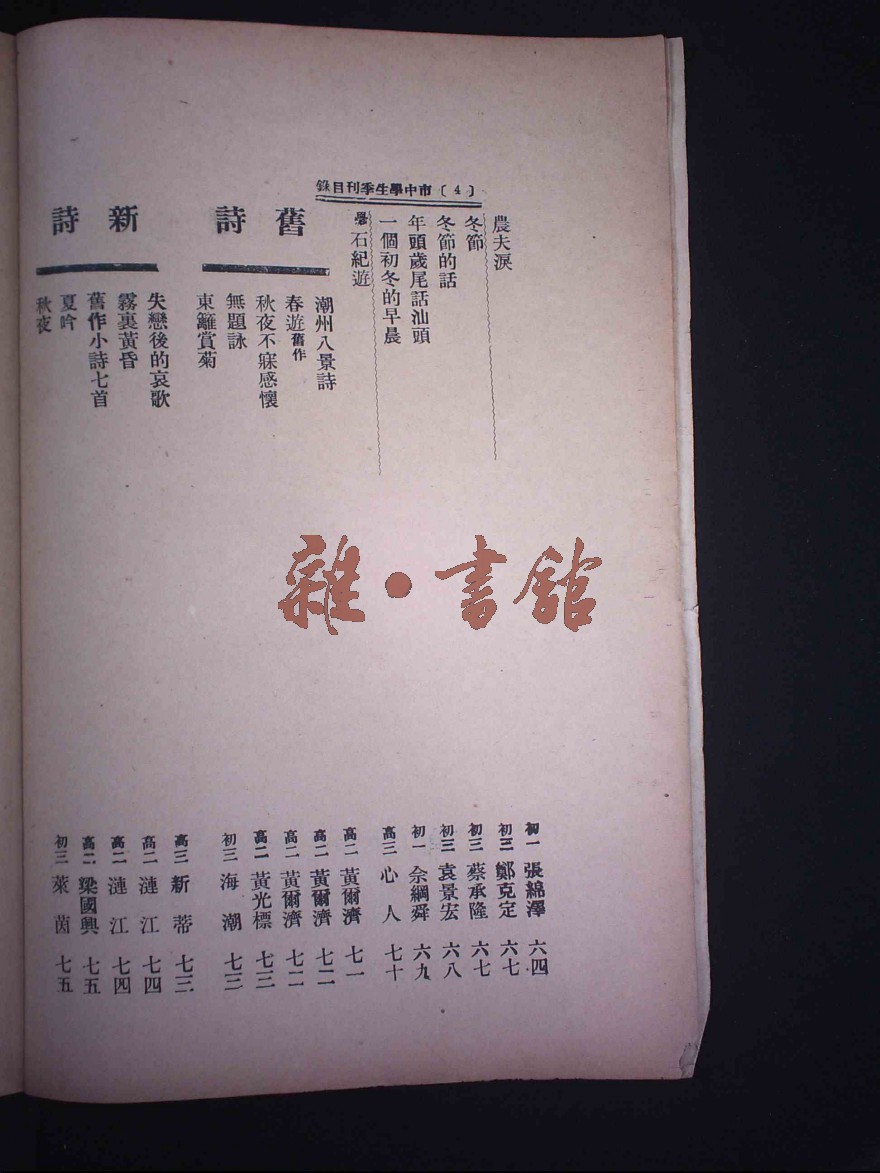 市中學生季刊目錄〔4〕
農夫淚 初一 張綿澤 六四
冬節 初三 鄭克定 六七
冬節的話 初三 蔡承隆 六七
年頭歲尾話汕頭 初三 袁景宏 六八
一個初冬的早晨 初一 佘綱舜 六九
石紀遊 高三 心人 七十
舊詩
潮州八景詩 高二 黃爾濟 七一
春遊舊作 高二 黃爾濟 七二
秋夜不寐感懷 高二 黃爾濟 七二
無題詠 高二 黃光標 七三
東籬賞菊 初三 海潮 七三
新詩
失戀後的哀歌 高三 新蒂 七三
霧裏黃昏 高二 漣江 七四
舊作小詩七首 高二 漣江 七四
夏吟 高二 梁國興 七五
秋夜 初三 萊茵 七五
雜·書館